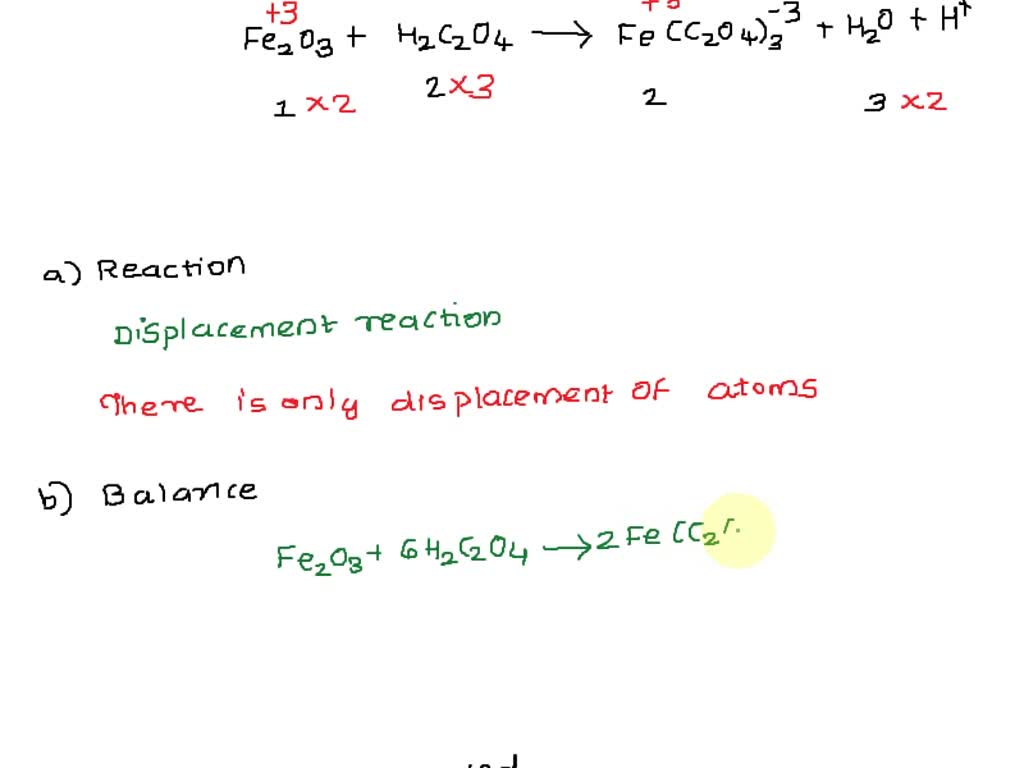 +3
Fe₂O₃ + H₂C₂O₄ → Fe(C₂O₄)₃⁻³ + H₂O + H⁺
1 ×2 2 ×3 2 3 ×2
a) Reaction
Displacement reaction
There is only displacement of atoms
b) Balance
Fe₂O₃ + 6H₂C₂O₄ → 2Fe(C₂